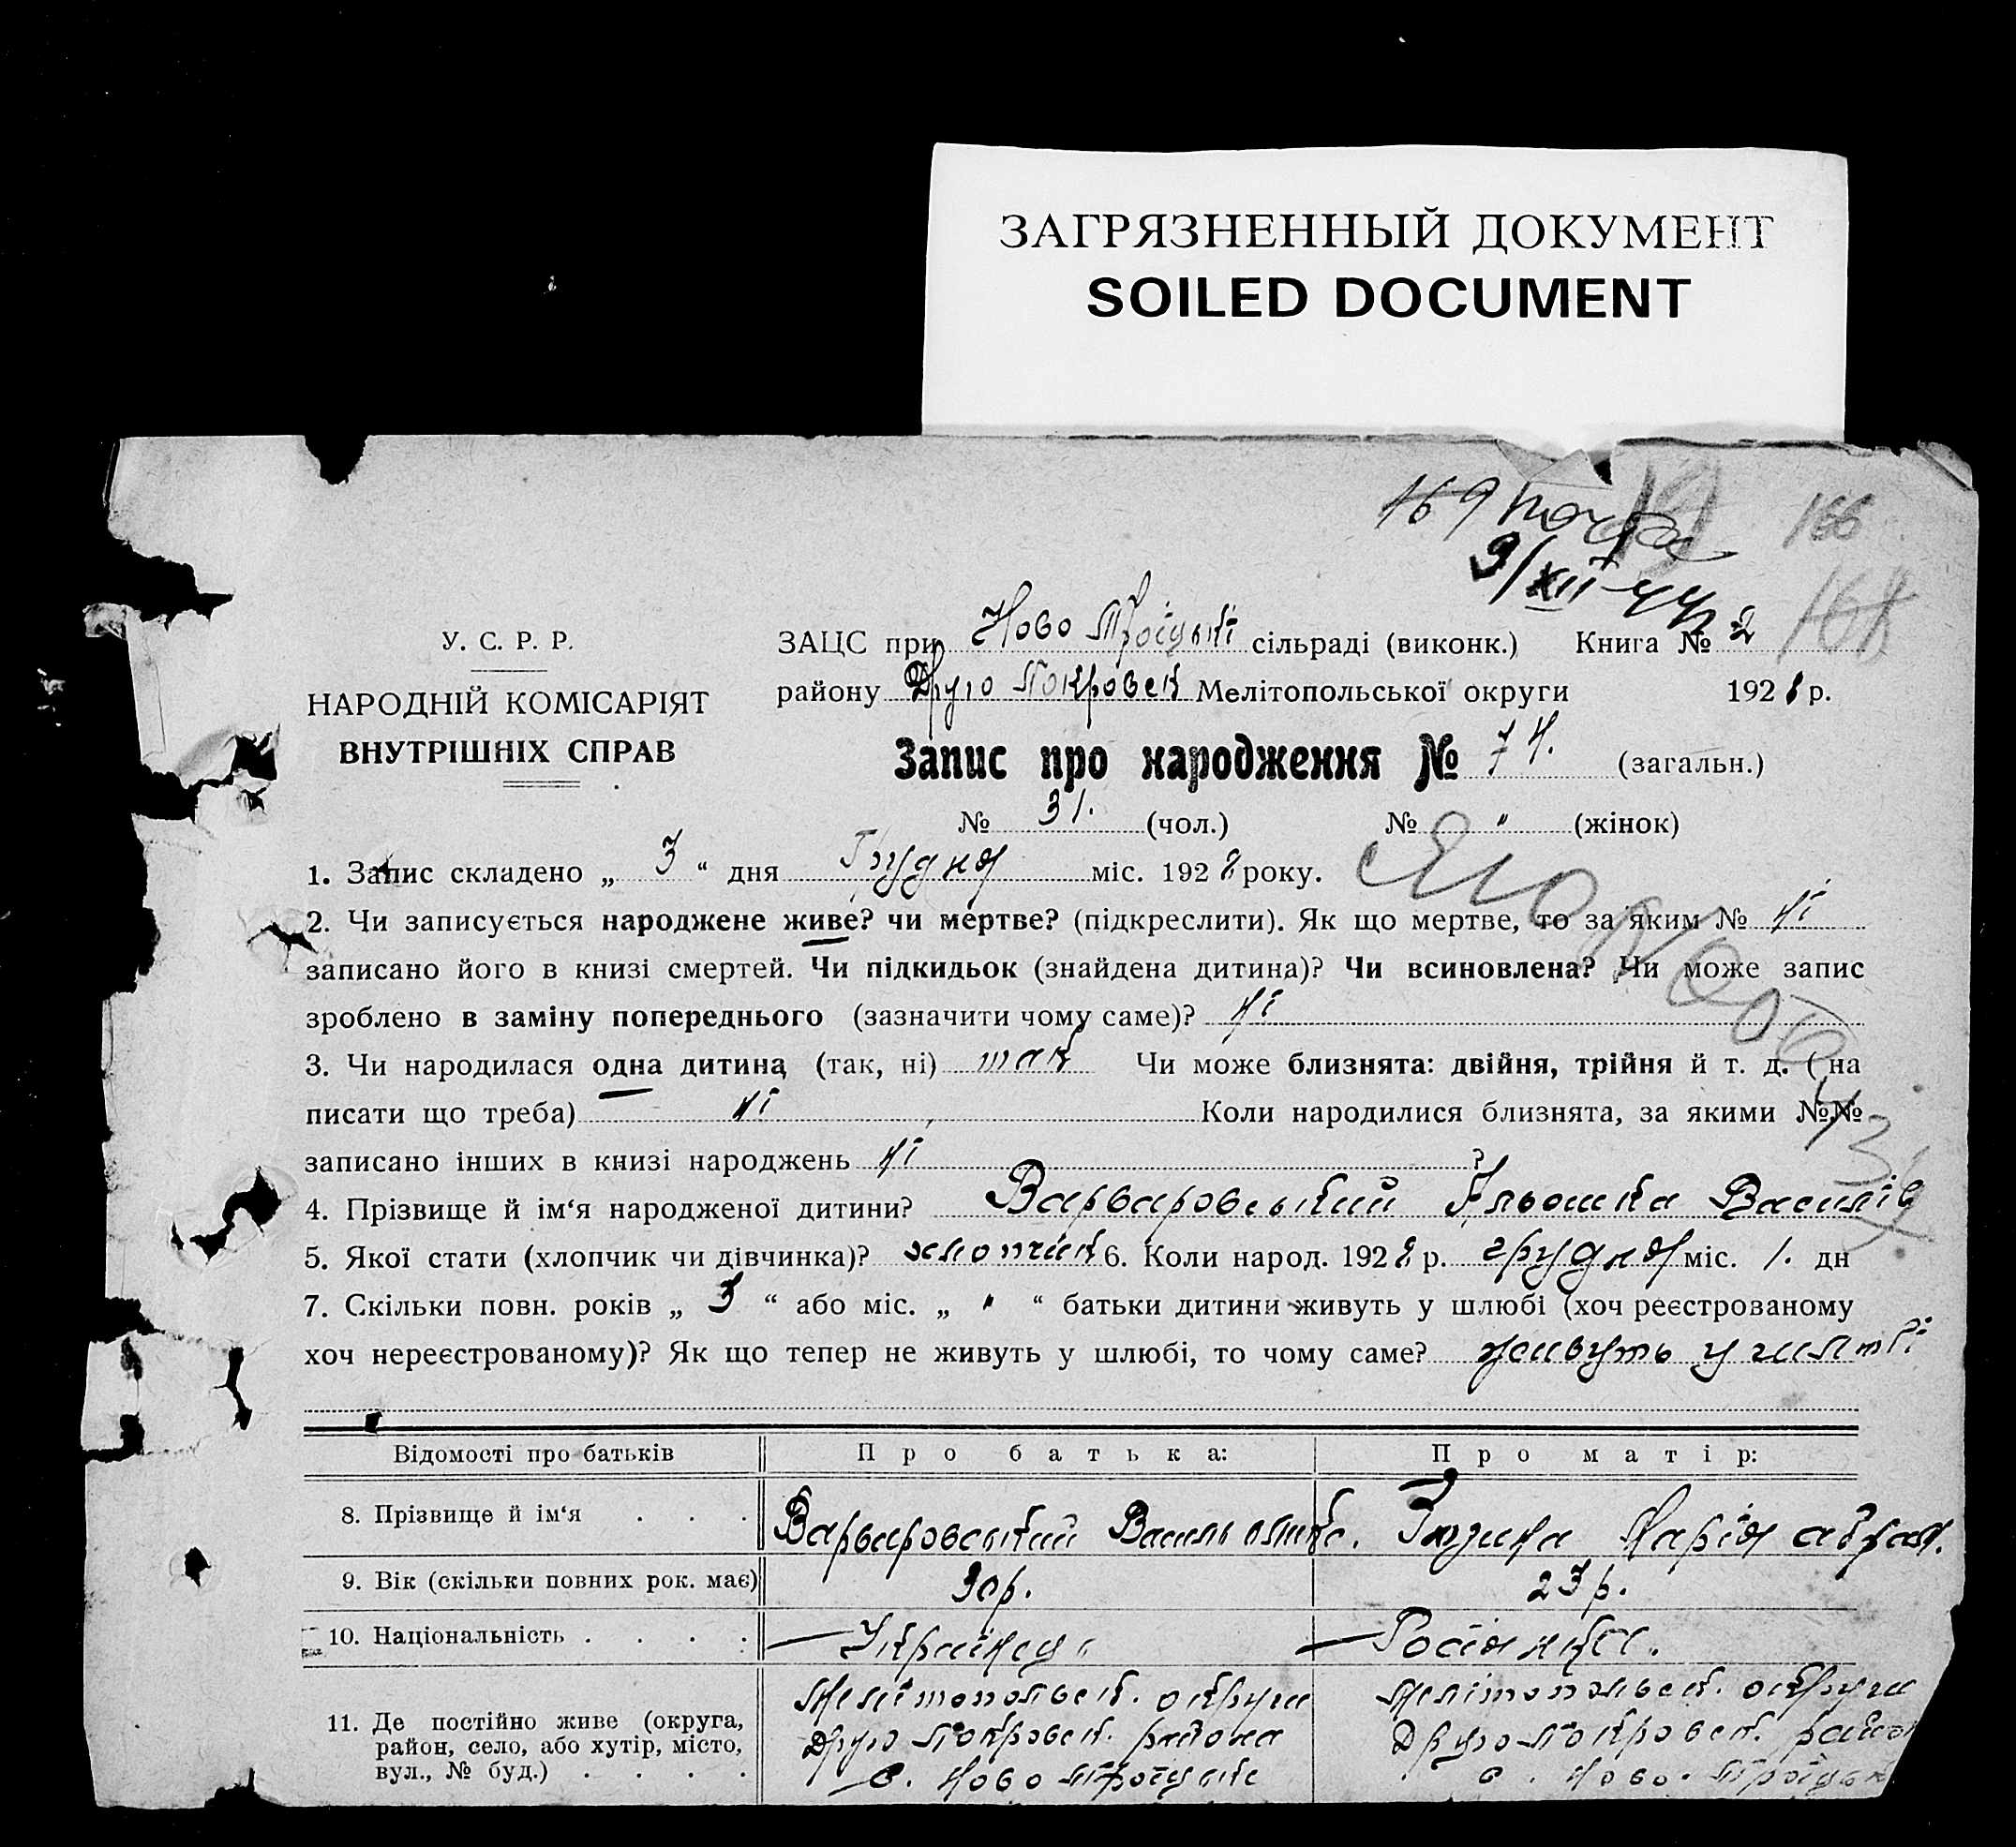 ЗАГРЯЗНЕННЫЙ ДОКУМЕНТ
SOILED DOCUMENT
169
166
9/XII-44
168
У. С. Р. Р.
НАРОДНІЙ КОМІСАРІЯТ
ВНУТРІШНІХ СПРАВ
ЗАЦС при Ново Троїцькі сільраді (виконк.) Книга № 2
району Друго Покровск Мелітопольської округи 1928 р.
Запис про народження № 74. (загальн.)
№ 31. (чол.) № " (жінок)
1. Запис складено „ 3 “ дня Грудня міс. 1928 року.
2. Чи записується народжене живе? чи мертве? (підкреслити). Як що мертве, то за яким № ні
записано його в книзі смертей. Чи підкидьок (знайдена дитина)? Чи всиновлена? Чи може запис
зроблено в заміну попереднього (зазначити чому саме)? ні
3. Чи народилася одна дитина (так, ні) так Чи може близнята: двійня, трійня й т. д. ( на
писати що треба) ні Коли народилися близнята, за якими №№
записано інших в книзі народжень ні ?
4. Прізвище й ім‘я народженої дитини? Варваровський Ільошка Василів
5. Якої стати (хлопчик чи дівчинка)? хлопчик 6. Коли народ. 1928 р. грудня міс. 1. дн
7. Скільки повн. років „ 3 “ або міс. „ " “ батьки дитини живуть у шлюбі (хоч реєстрованому
хоч нереєстрованому)? Як що тепер не живуть у шлюбі, то чому саме? живуть у
Відомості про батьків Про батька: Про матір:
8. Прізвище й ім‘я . . . Варваровський Василь Марія
9. Вік (скільки повних рок. має) 30 р. 23 р.
10. Національність . . . . Українец Росіянка.
11. Де постійно живе (округа, Мелітопольск. округи Мелітопольск. округи
район, село, або хутір, місто, Друго Покровск. района Друго-Покровск.
вул., № буд.) . . . . с. Ново Троїцьке с. Ново-